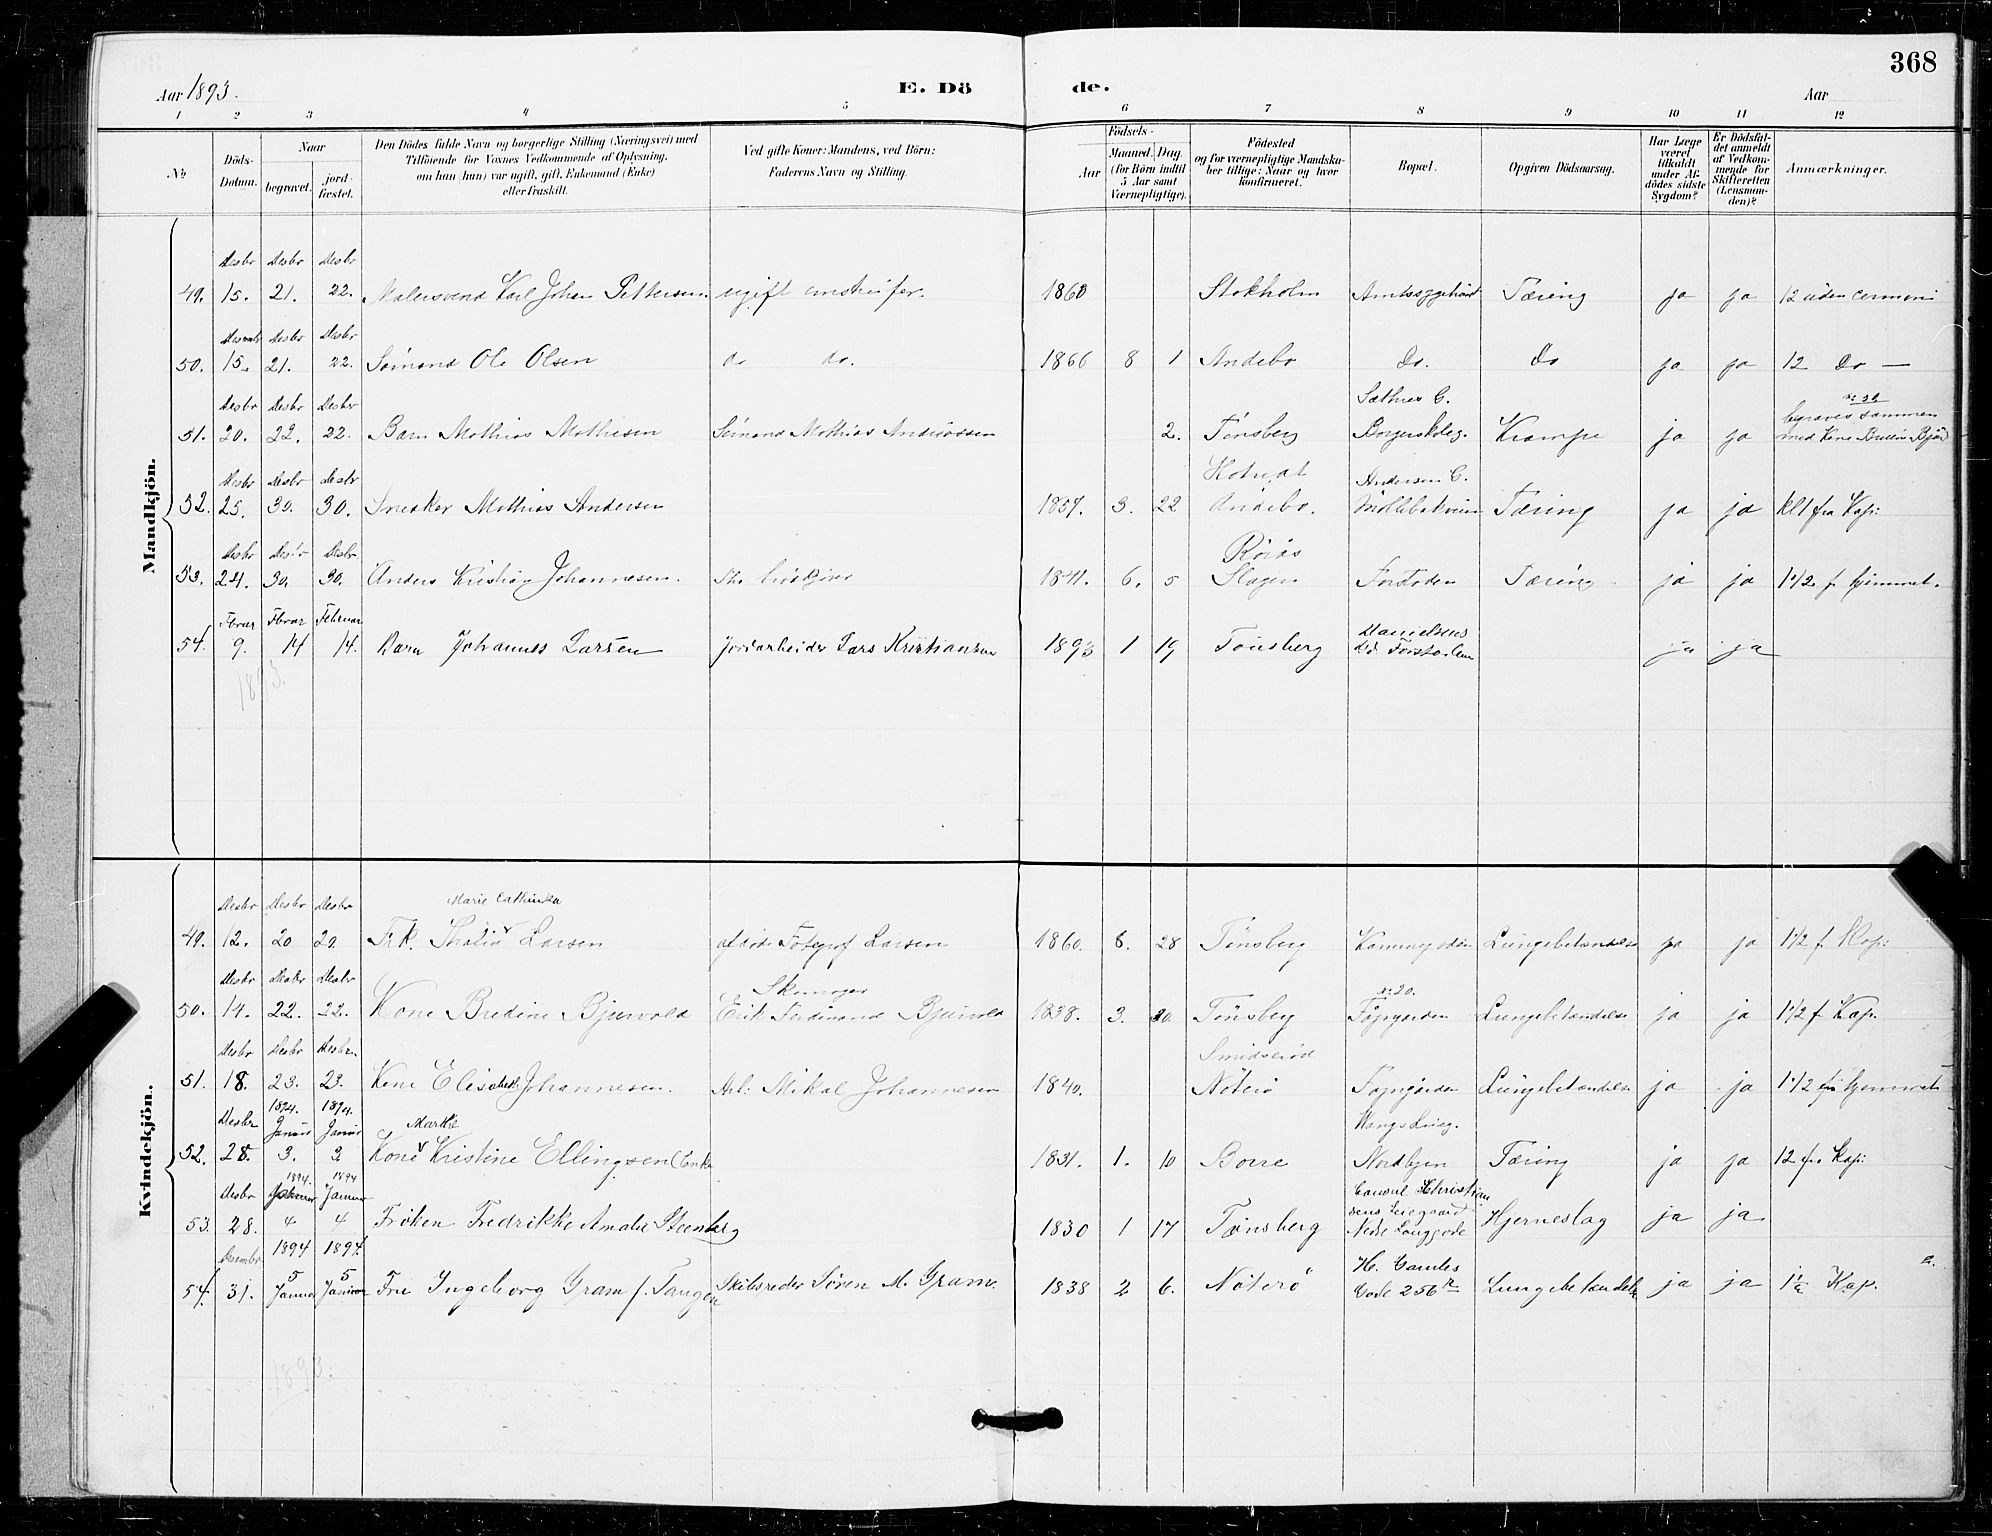 368
Aar 1893.
E. Dö de.
Aar
1 2 3 4 5 6 7 8 9 10 11 12
No
Döds-Datum.
Naar
begravet.
jord-fæstet.
Den Dödes fulde Navn og borgerlige Stilling (Næringsvei) med
Tilföiende for Voxnes Vedkommende af Oplysning,
om han (hun) var ugift, gift, Enkemand (Enke)
eller fraskilt.
Ved gifte Koner: Mandens, ved Börn:
Faderens Navn og Stilling.
Födsels-
Aar
Maaned. Dag.
(for Börn indtil
5 Aar samt
Værnepligtige).
Födested
og for værnepligtige Mandska-
ber tillige: Naar og hvor
konfirmeret.
Bopæl.
Opgiven Dödsaarsag.
Har Læge
været
tilkaldt
under Af-
dödes sidste
Sygdom?
Er Dödsfal-
det anmeldt
af Vedkom-
mende for
Skifteretten
(Lensman-
den)?
Anmærkninger.
Mandkjön.
Desbr Desbr Desbr
49. 15. 21. 22. Malersvend Karl Johan Pettersen. ugift 1860 Stokholm Amtssygehuset Tæring ja ja 12 uden cermoni
Desembr Desbr Desbr
50. 15. 21. 22. Sømand Ole Olsen do do. 1866 8 1 Andebo Do. Do ja ja 12 Do —
Desbr Desbr Desbr Sæthres C. begraves sammen
51. 20. 22. 22. Barn Mathias Mathisen Sømand Mathias Andreassen 2. Tønsberg Borgerskoleg. Krampe ja ja med Kone
Desbr Desbr Desbr Andersen C.
52. 25. 30. 30. Snedker Mathias Andersen 1857. 3. 22 Andebo. Møllebakveien Tæring ja ja Kl 1 fra Kap:
Desbr Desbr Desbr Roiås
53. 24. 30. 30. Anders Kristian Johannesen. 1841. 6. 5 Slagen Forstaden Tæring ja ja 1 1/2 f hjemmet.
Fbruar Fbruar Februar Danielsens
54. 9. 14 14. Barn Johannes Larsen Jordarbeider Lars Kristiansen 1893 1 19 Tönsberg Forstaden ja ja
1893.
Kvindekjön.
Desbr Desbr Desbr Marie Cathinka
49. 12. 20 20. Frk. Thalia Larsen afdøde Fotograf Larsen 1860. 8. 28 Tønsberg Lungebetændelse ja ja 1 1/2 f. Kap:
Desbr Desbr Desbr Skomager No 20.
50. 14. 22. 22. Kone Bredine Bjurvold Erik Ferdinand Bjurvold 1838. 3. 30. Tønsberg Fajegarden Lungebetændelse ja ja 1 1/2 f Kap.
Desbr Desbr Desbr Smidserød
51. 18. 23. 23. Kone Elisabeth Johannesen. Arb: Mikal Johannesen 1840. Nøterø Lungebetændelse ja ja 1 1/2 fra hjemmet
1894. 1894.
Desbr Januar Januar Marthe
52. 28. 3. 3 Kone Kristine Ellingsen (Enke 1831. 1. 10 Borre Nordbyen Tæring ja ja 12 fra Kap:
1894. 1894
Desbr Januar Januar Consul Christian
sens Leiegaard
53. 28. 4 4 Frøken Fredrikke Amalie Steenberg 1830 1 17 Tønsberg Nedre Langgade Hjerneslag ja ja
Desember 1894 1894. H. Camles
54. 31. 5 Januar 5 Januar Fru Ingeborg Gram f. Tangen Skibsreder Søren M. Gram. 1838 2 6. Nöterö Gade 256 Lungebetændelse ja ja 1 1/2 Kap.
1893.